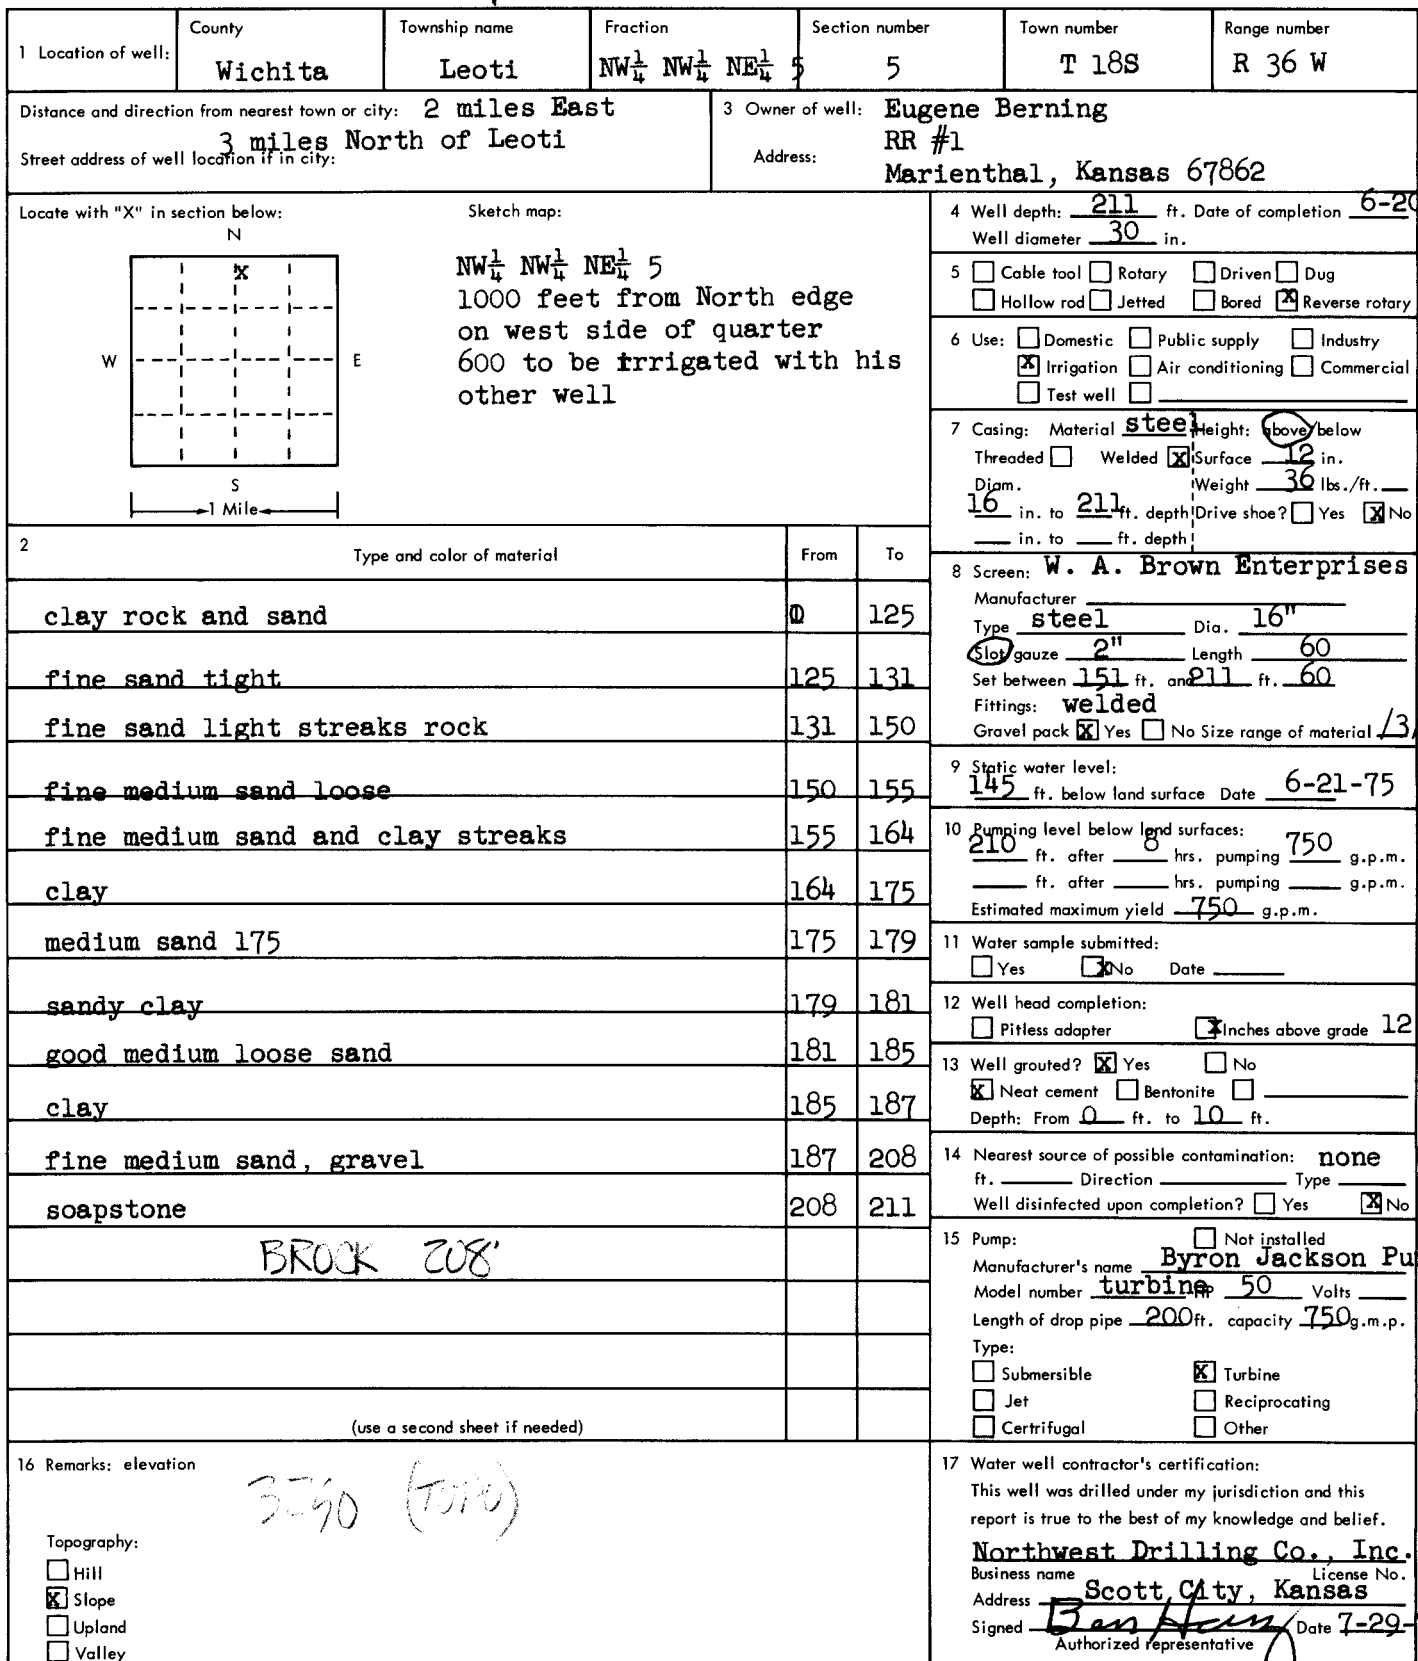 County Township name Fraction Section number Town number Range number
1 Location of well: Wichita Leoti NW¼ NW¼ NE¼ 5 5 T 18S R 36 W
Distance and direction from nearest town or city: 2 miles East
3 miles North of Leoti
Street address of well location if in city:
3 Owner of well: Eugene Berning
RR #1
Address:
Marienthal, Kansas 67862
Locate with "X" in section below:
N
X
W E
S
1 Mile
Sketch map:
NW¼ NW¼ NE¼ 5
1000 feet from North edge
on west side of quarter
600 to be irrigated with his
other well
2 Type and color of material From To
clay rock and sand 0 125
fine sand tight 125 131
fine sand light streaks rock 131 150
fine medium sand loose 150 155
fine medium sand and clay streaks 155 164
clay 164 175
medium sand 175 175 179
sandy clay 179 181
good medium loose sand 181 185
clay 185 187
fine medium sand, gravel 187 208
soapstone 208 211
BROCK 208'
(use a second sheet if needed)
16 Remarks: elevation
(TOPO)
Topography:
Hill
X Slope
Upland
Valley
4 Well depth: 211 ft. Date of completion 6-20
Well diameter 30 in.
5 Cable tool Rotary Driven Dug
Hollow rod Jetted Bored X Reverse rotary
6 Use: Domestic Public supply Industry
X Irrigation Air conditioning Commercial
Test well
7 Casing: Material steel Height: above/below
Threaded Welded X Surface 12 in.
Diam. Weight 36 lbs./ft.
16 in. to 211 ft. depth Drive shoe? Yes X No
in. to ft. depth
8 Screen: W. A. Brown Enterprises
Manufacturer
Type steel Dia. 16"
Slot/gauze 2" Length 60
Set between 151 ft. and 211 ft. 60
Fittings: welded
Gravel pack X Yes No Size range of material
9 Static water level:
145 ft. below land surface Date 6-21-75
10 Pumping level below land surfaces:
210 ft. after 8 hrs. pumping 750 g.p.m.
ft. after hrs. pumping g.p.m.
Estimated maximum yield 750 g.p.m.
11 Water sample submitted:
Yes X No Date
12 Well head completion:
Pitless adapter X Inches above grade 12
13 Well grouted? X Yes No
X Neat cement Bentonite
Depth: From 0 ft. to 10 ft.
14 Nearest source of possible contamination: none
ft. Direction Type
Well disinfected upon completion? Yes X No
15 Pump: Not installed
Manufacturer's name Byron Jackson Pu
Model number turbine HP 50 Volts
Length of drop pipe 200 ft. capacity 750 g.m.p.
Type:
Submersible X Turbine
Jet Reciprocating
Certrifugal Other
17 Water well contractor's certification:
This well was drilled under my jurisdiction and this
report is true to the best of my knowledge and belief.
Northwest Drilling Co., Inc.
Business name License No.
Address Scott City, Kansas
Signed Date 7-29-
Authorized representative